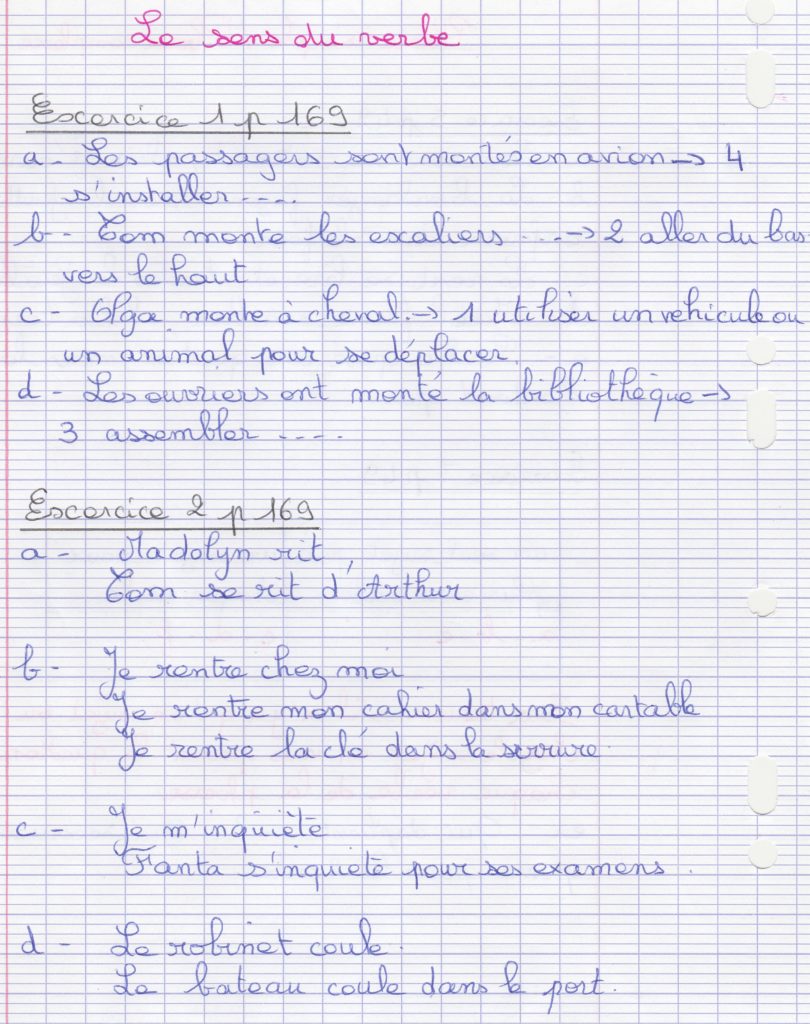 Le sens du verbe
Excercice 1 p 169
a - Les passagers sont montés en avion → 4
s'installer ....
b - Tom monte les escaliers ... → 2 aller du bas
vers le haut
c - Olga monte à cheval. → 1 utiliser un vehicule ou
un animal pour se déplacer.
d - Les ouvriers ont monté la bibliothèque →
3 assembler ....
Excercice 2 p 169
a - Madolyn rit
Tom se rit d'Arthur
b - Je rentre chez moi
Je rentre mon cahier dans mon cartable
Je rentre la clé dans la serrure.
c - Je m'inquiète
Fanta s'inquiete pour ses examens.
d - Le robinet coule.
Le bateau coule dans le port.